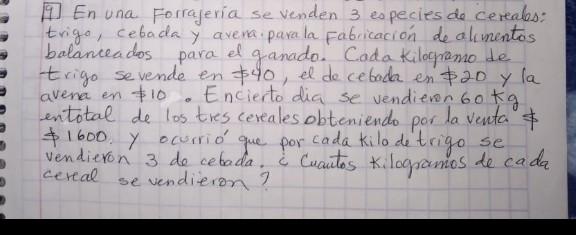 9 En una Forrajería se venden 3 especies de cereales:
trigo, cebada y avena para la Fabricación de alimentos
balanceados para el ganado. Cada Kilogramo de
trigo se vende en $40, el de cebada en $20 y la
avena en $10. En cierto dia se vendieron 60 Kg
en total de los tres cereales obteniendo por la venta $
$1600. y ocurrió que por cada Kilo de trigo se
vendieron 3 de cebada. ¿ Cuantos Kilogramos de cada
cereal se vendieron?